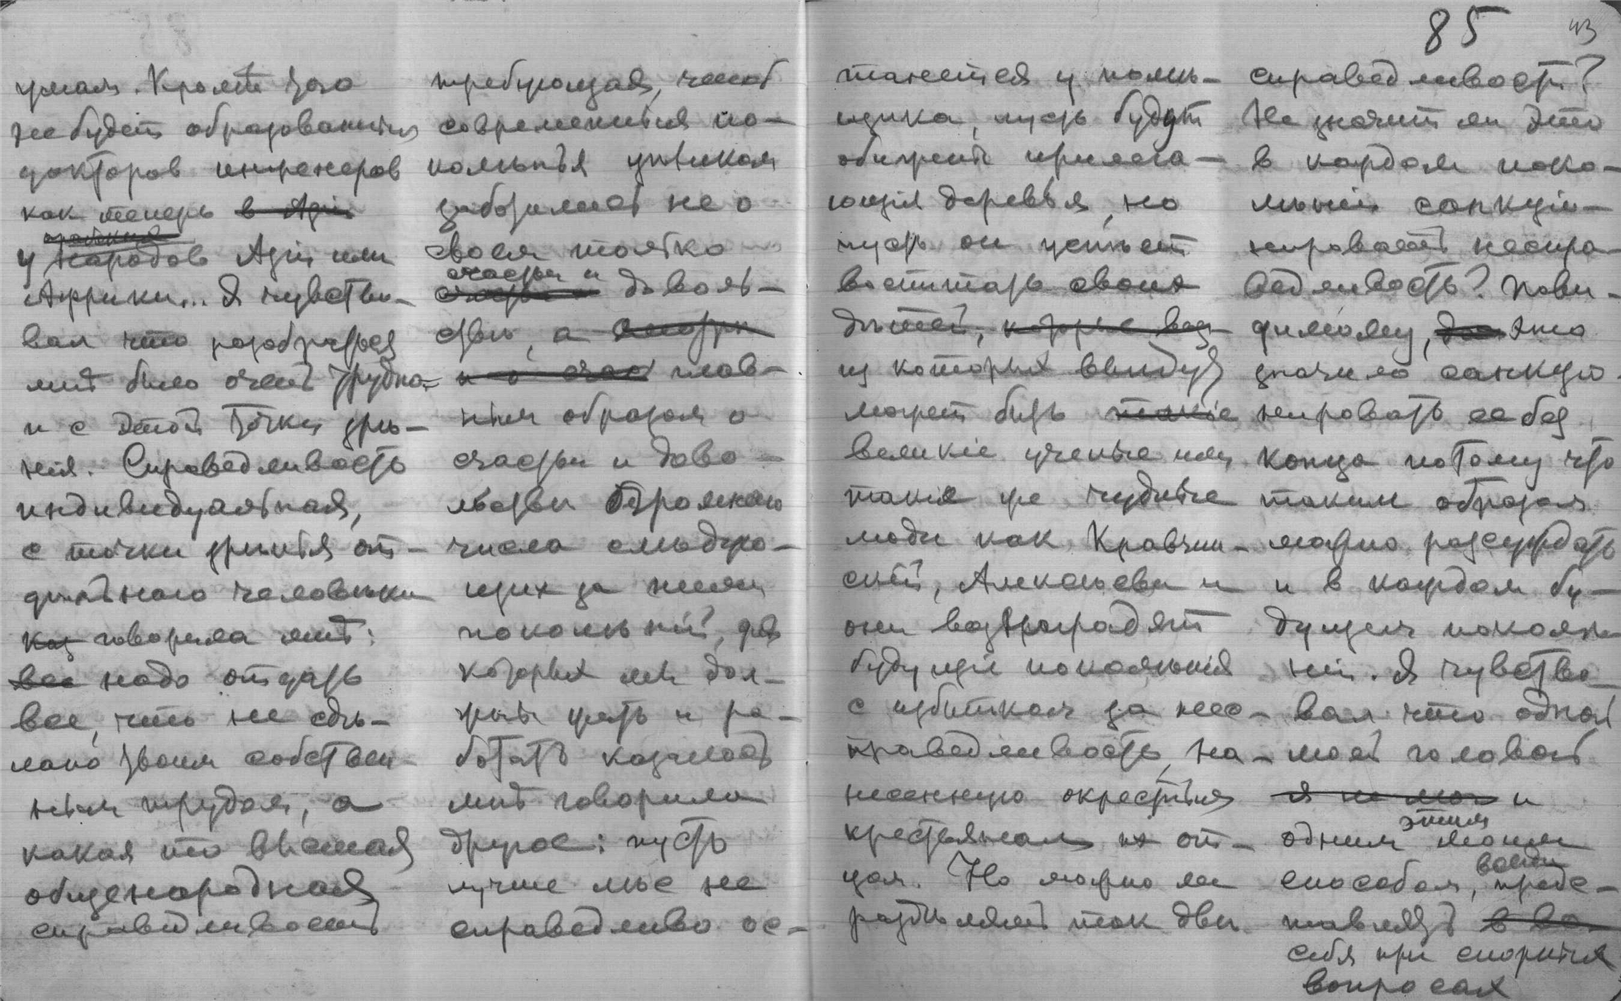 85
43
умам. Кромѣ того
не будетъ образованныхъ
докторовъ инженеровъ
как теперь в Азіи
у народовъ Азіи или
Африки... Я чувство-
вал что разобраться
мнѣ было очень трудно
и с этой точки зрѣ-
нія. Справедливость
индивидуальная,
с точки зрѣнія от-
дѣльнаго человѣка
говорила мнѣ:
все надо отдать
все, что не сдѣ-
лано твоим собствен-
ным трудом, а
какая то высшая
общенародная
справедливость
требующая, чтоб
современныя по-
колѣнья цѣликом
заботились не о
своем только
счастьи и
доволь-
ствѣ, а
и о счас глав-
ным образом о
счастьи и дово-
льствѣ огромнаго
числа слѣдую-
щих за ними
поколѣній, для
которых мы дол-
жны жить и ра-
ботать казалось
мнѣ говорила
другое: пусть
лучше лѣс не
справедливо ос-
танется у помѣ-
щика, пусть будут
обижены прилега-
ющія деревья, но
пусть он успѣет
воспитать своих
дѣтей, которые
из которых выйдут
может быть такіе
великіе ученые или
такія же чудные
люди как Кравчин-
скій, Алексѣевы и
они вознаградят
будущія поколѣнія
с избытком за нес-
праведливость, на-
несенную окрестным
крестьянам их от-
цам. Но можно ли
раздѣлять так двѣ
справедливости?
Не значит ли это
в каждом поко-
лѣніи санкціо-
нировать неспра
ведливость? Пови-
димому, это
значило санкціо-
нировать ее без
конца потому что
таким образом
можно разсуждать
и в каждом бу-
дущем поколѣ-
ніи. Я чувство-
вал что одной
моей головой
я не мог и
этим
одним моим
всеми
способом, предс-
тавлять в во
себя при спорных
вопросах